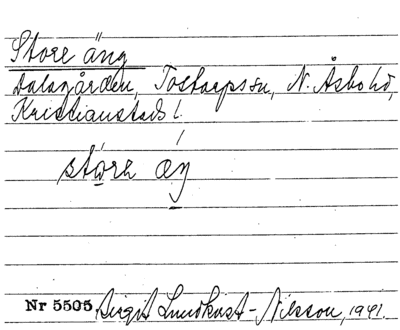 Store äng
Dalagården, Tostarpssn, N. Åsbo hd,
Kristianstads l.
stóre æŋ
Nr 5505, Birgit Lundkvist-Nilsson, 1941.